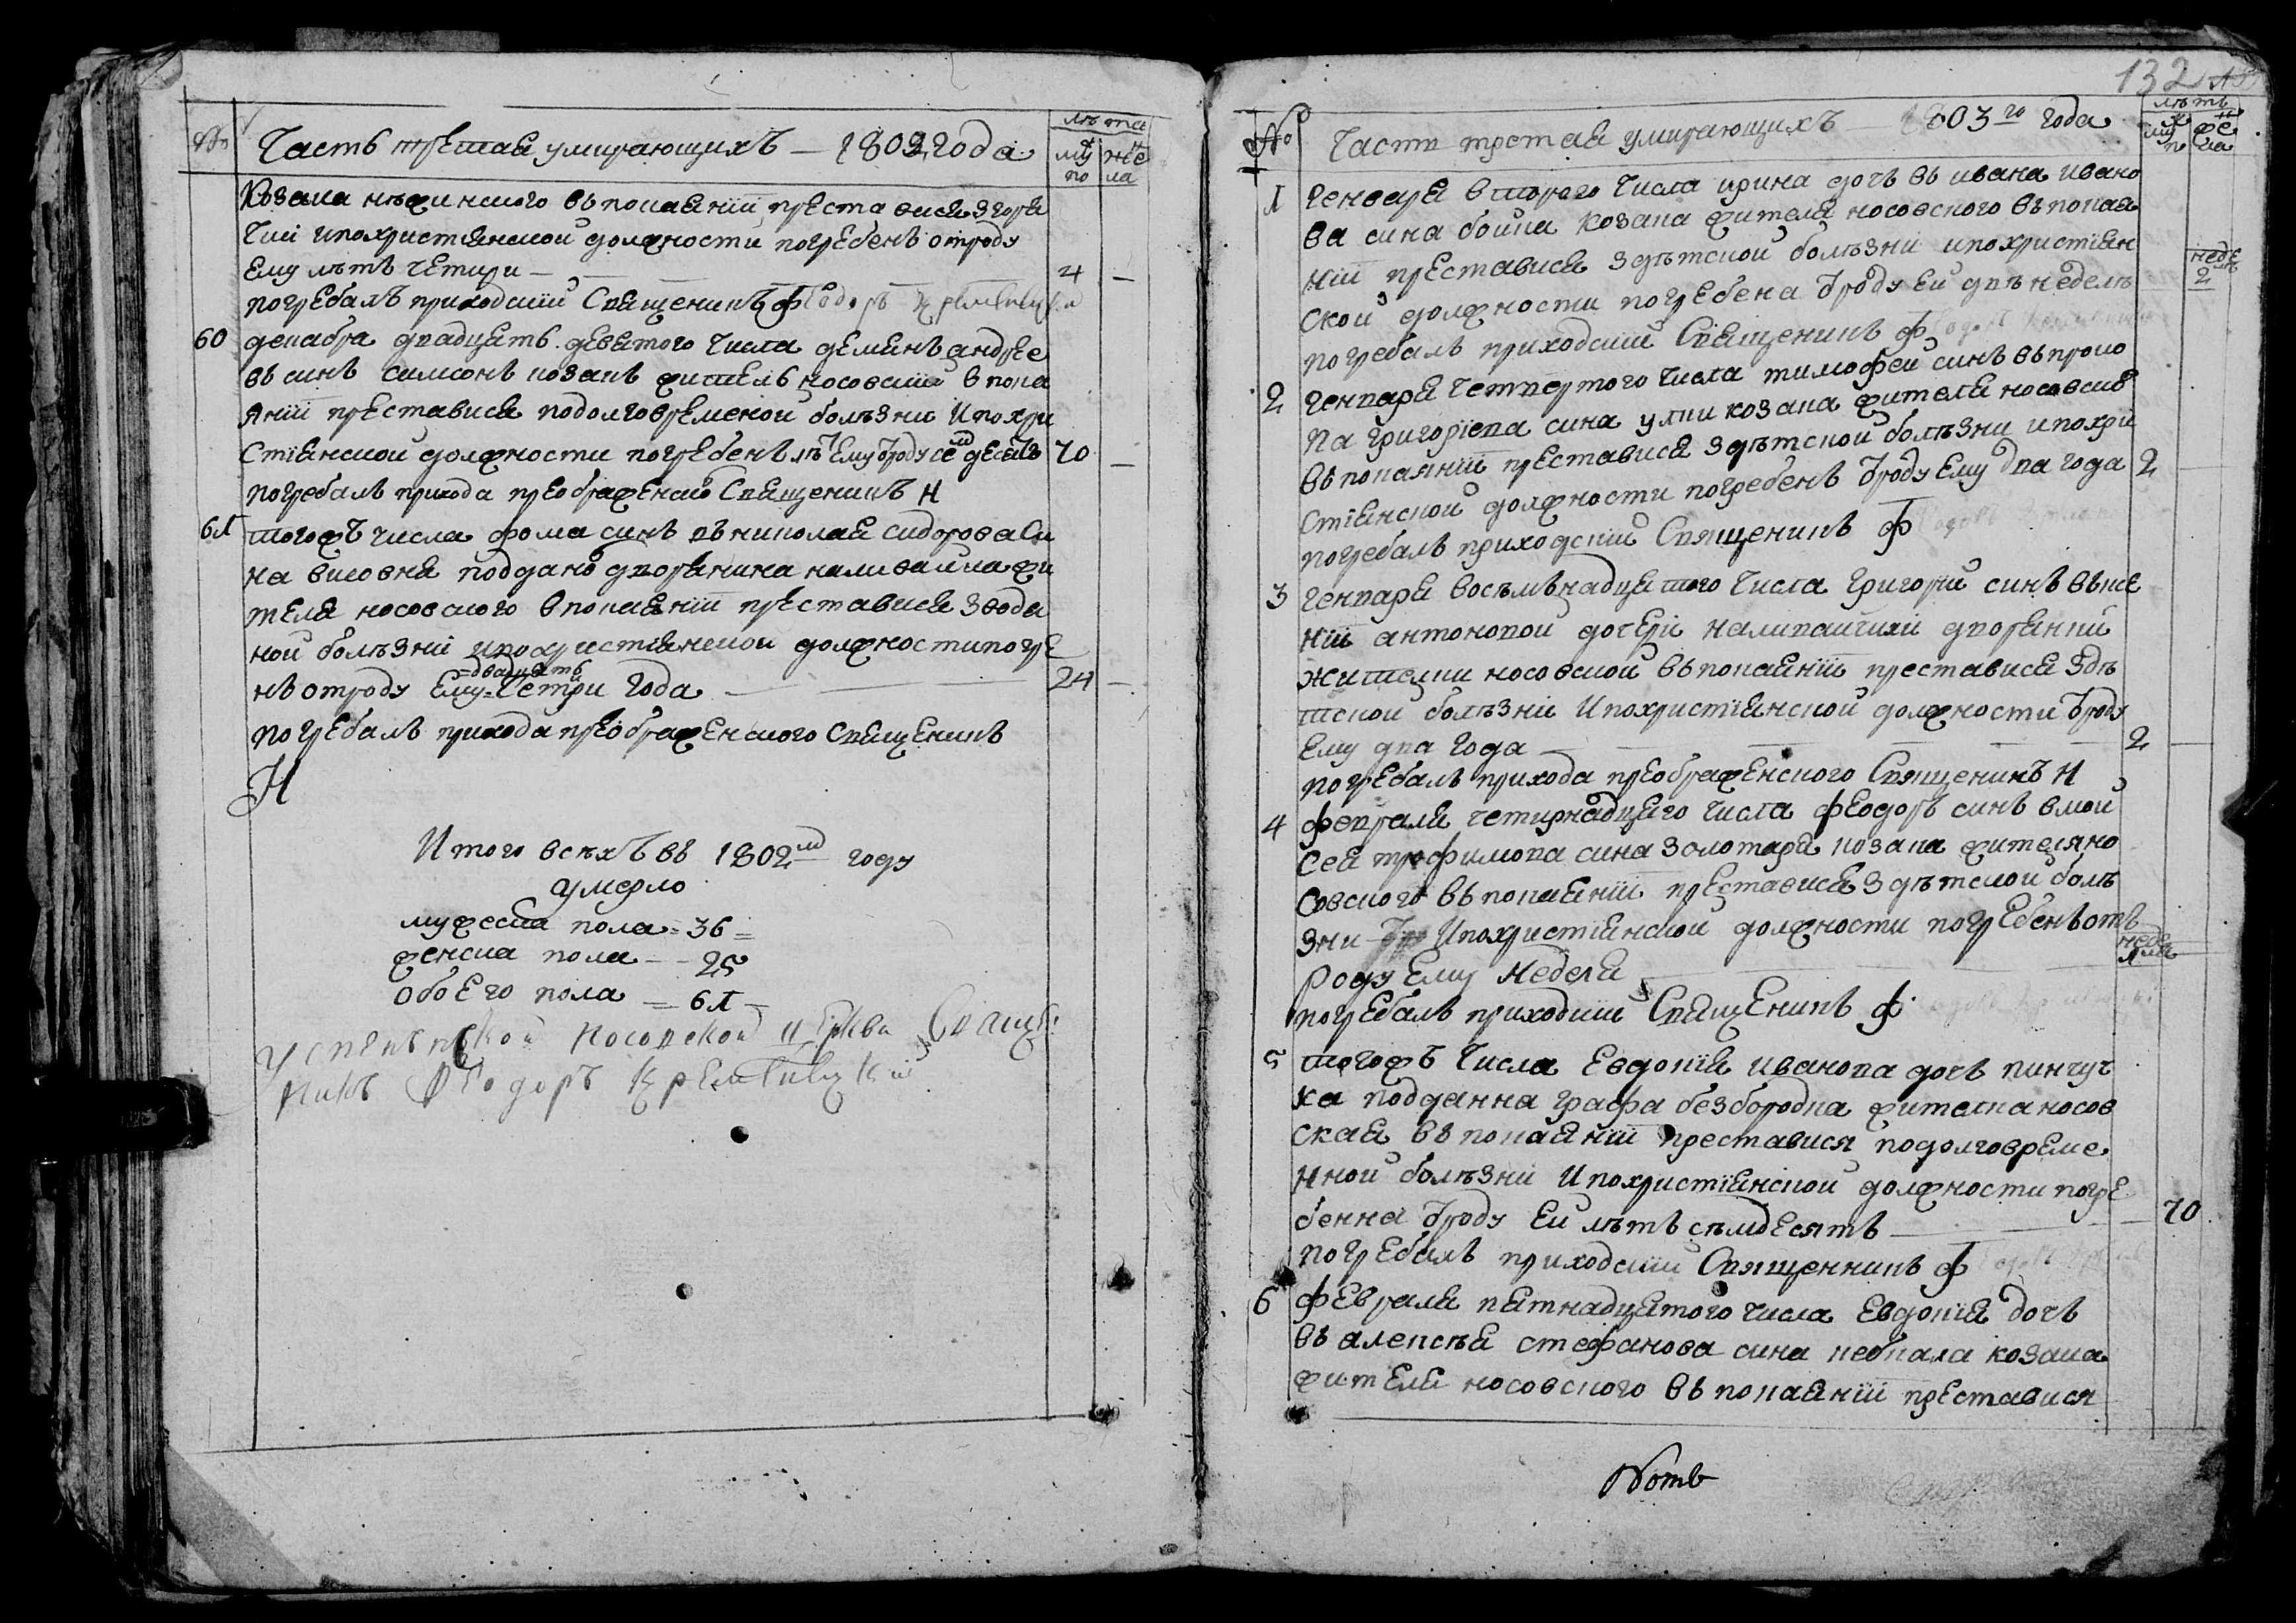 № Часть третая умирающихъ — 1802 года
лѣта
му по
же ла
козака нѣжинского въ покаянїи преставися з горя
чкі и по христїянской должности погребенъ отроду
ему лѣтъ четири — 4 —
погребалъ приходскій Священикъ Феодоръ
60 декабра двадцать девятого числа деміянъ андрее
въ синъ самсонъ козакъ житель носовскій в пока
янїи преставися по долговременой болѣзни и по хри
стїянской должности погребенъ лѣтъ ему отроду семдесятъ 70 —
погребалъ прихода преображенско Священикъ Н
61 тогожъ числа фома синъ въ николая сидорова си
на висовня подданого дворянина наливайка жи
теля носовского в покаянїи преставися з водя
ной болѣзни и по христїянской должности погребе
нъ отроду ему двадцать четири года — 24 —
погребалъ прихода преображенского священикъ
Н
Итого всѣхъ въ 1802м году
умерло
мужеска пола = 36 =
женска пола — 25
обоего пола — 61 —
Успенской Носовской церкви Свяще
никъ Феодоръ
132
№ Части третая умирающихъ — 1803го года
лѣтъ
муж по
жен ла
1 генваря второго числа ирина дочь въ ивана ивано
ва сина бойка козака жителя носовского въ покая
нїи преставися з дѣтской болѣзни и по христїян
ской должности погребена отроду ей двѣ неделѣ
неделѣ 2
погребалъ приходскій Священикъ Ф
2 генваря четвертого числа тимофей синъ въ проко
па григорієва сина козака жителя носовско
въ покаянїи преставися з дѣтской болѣзни и по хри
стїянской должности погребенъ отроду ему два года 2 —
погребалъ приходскїй Священикъ Ф
3 генваря восѣмънадцятого числа григорій синъ въ ксе
нїи антоновой дочері наливайчихи дворянки
жителки носовской въ покаянїи преставися з дѣ
тской болѣзни и по христїянской должности отроду
ему два года — 2 —
погребалъ прихода преображенского Священикъ Н
4 февраля четирнадцяго числа феодоръ синъ в мой
сея трофимова сина золотаря козака жителя но
совского въ покаянїи преставися з дѣтской болѣ
зни и по христїянской должности погребенъ отъ
роду ему неделя
неде 1
погребалъ приходскій Священикъ Ф
5 тогожъ числа евдокїя иванова дочь пинчуч
ка подданна графа безбородка жителка носов
ская въ покаянїи преставися по долговреме
нной болѣзни и по христїянской должности погре
бенна отроду ей лѣтъ сѣмдесятъ — 70
погребалъ приходскїи Священникъ Ф
6 февраля пятнадцятого числа евдокїя дочь
въ алексѣя стефанова сина козака
жителя носовского въ покаянїи преставися